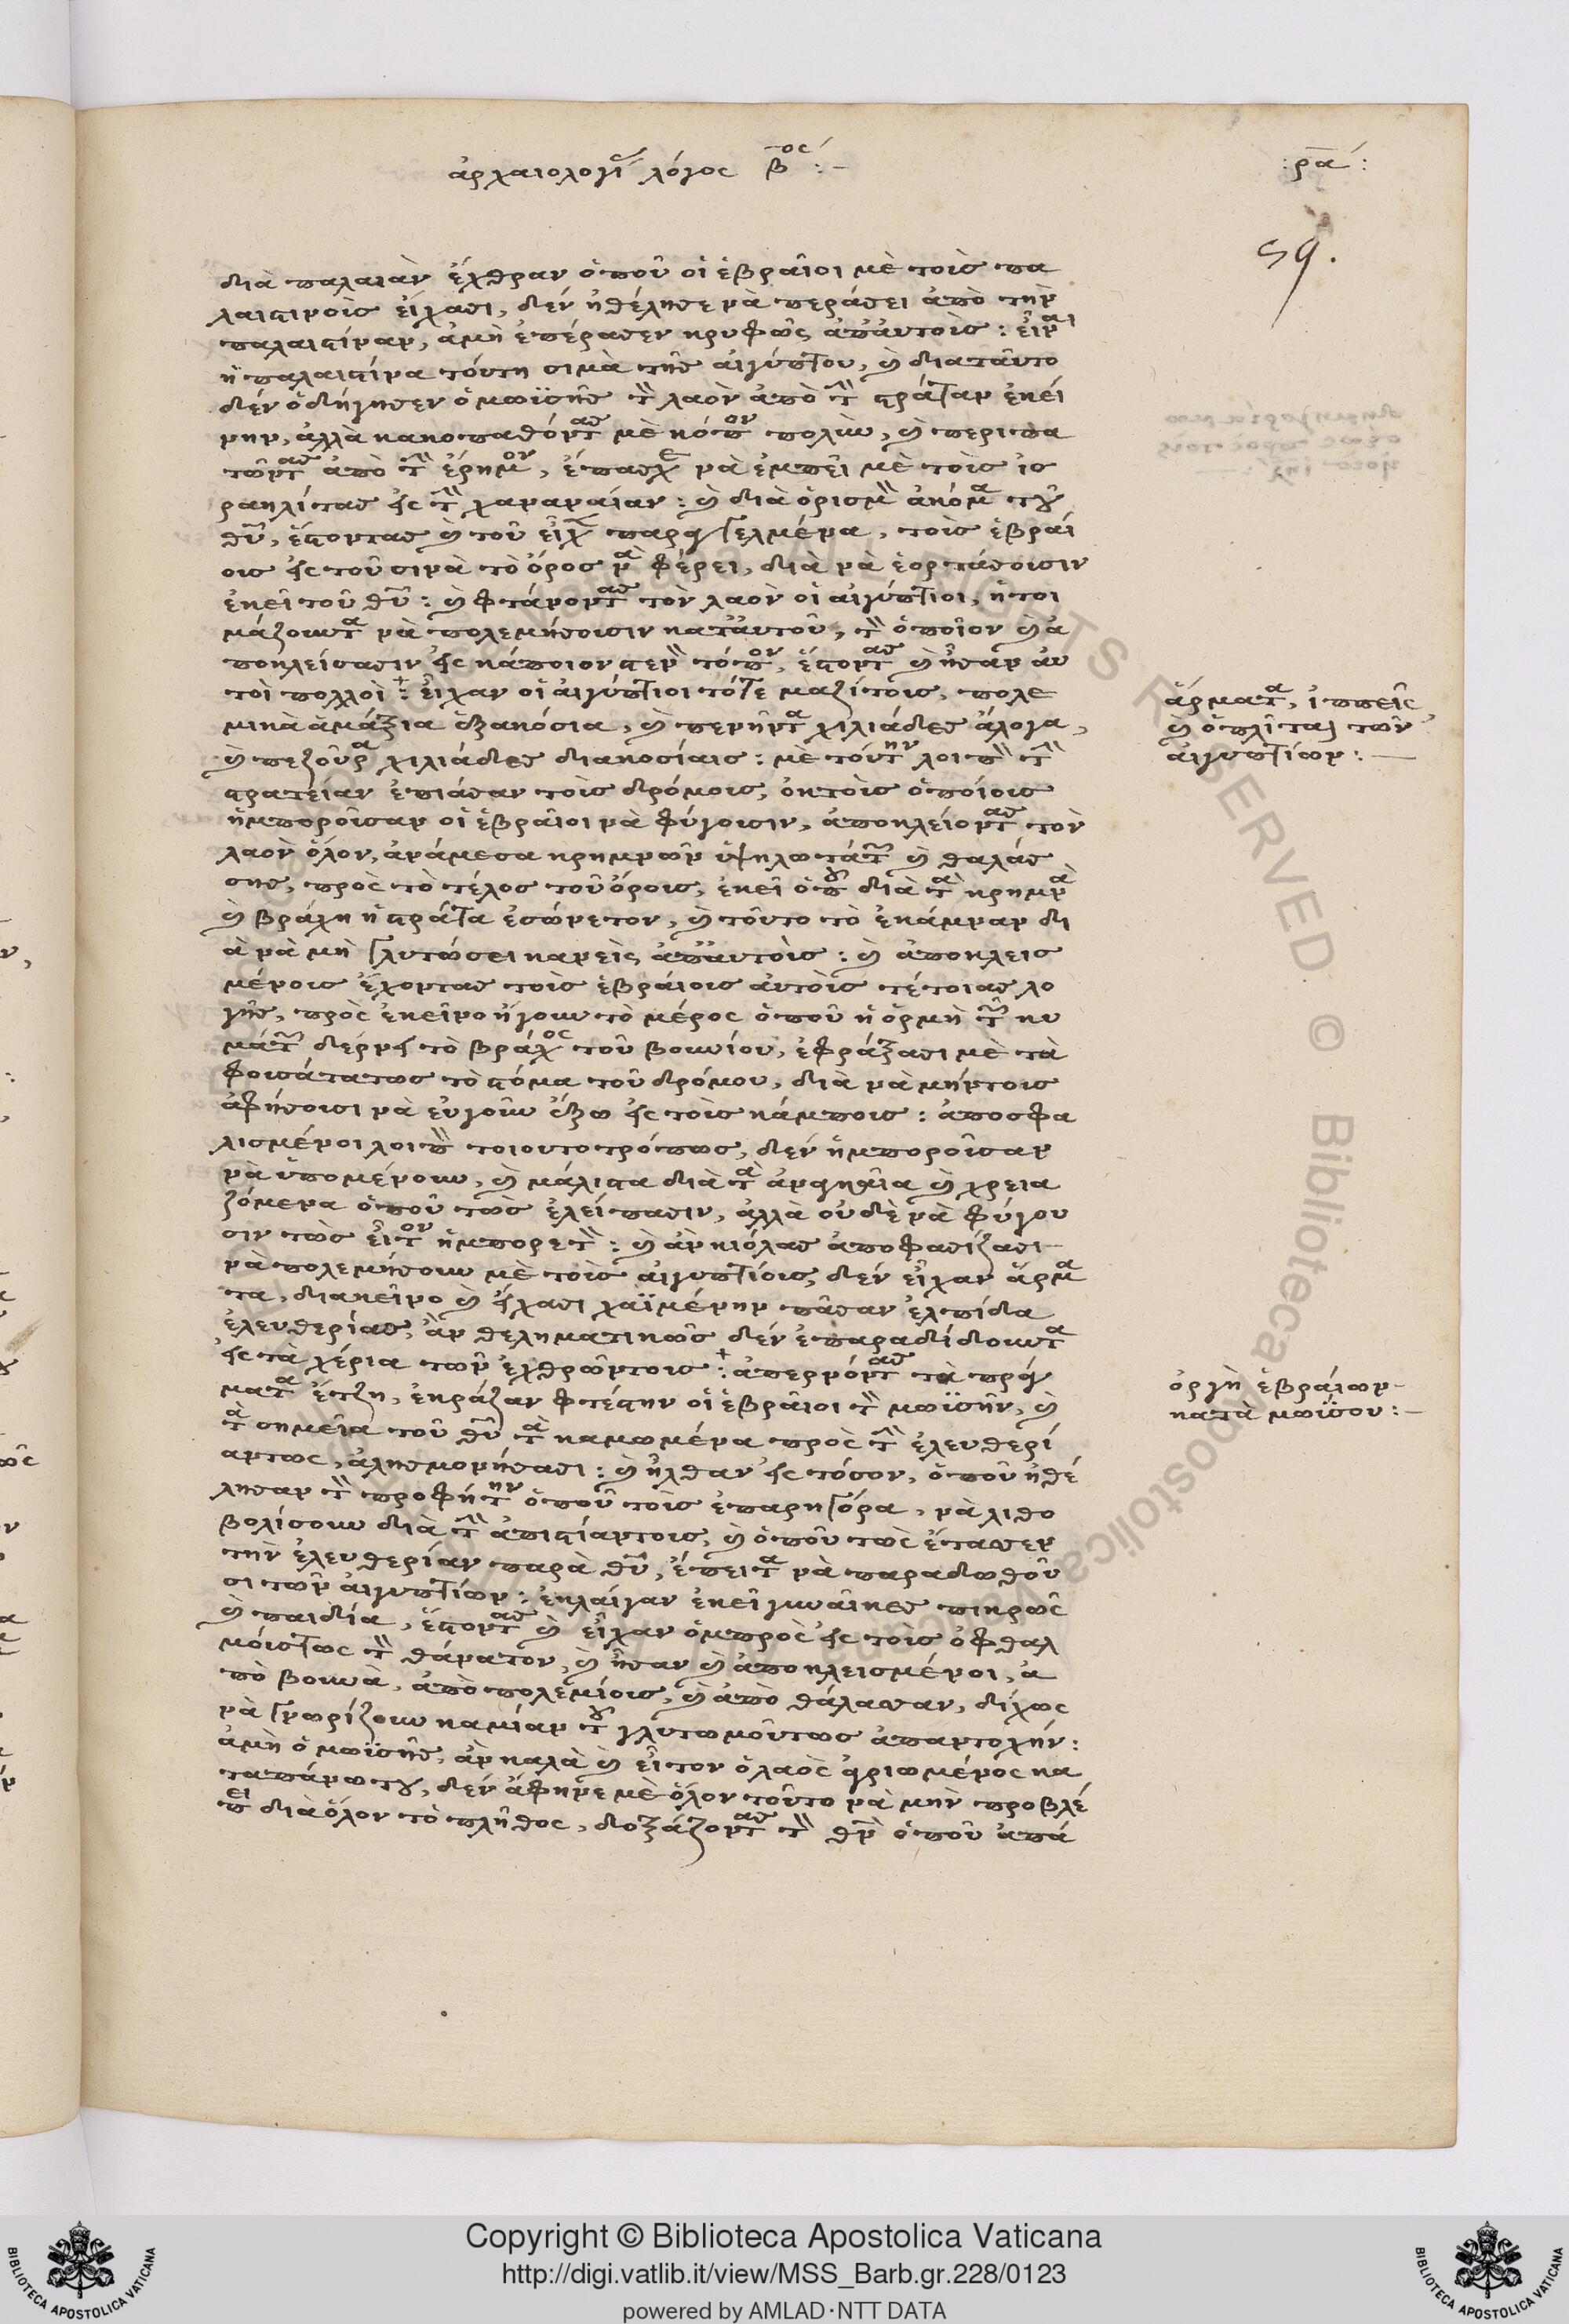 ἀρχαιολογί λόγος β^ος :-
:ρα:
59.
διὰ παλαιὰν ἔχθραν ὁποῦ οἱ ἑβραῖοι μὲ τοὶς πα
λαιστινοὶς εἴχασι, δὲν ἠθέλησε νὰ περάσει ἀπὸ τὴν
παλαιστίναν, ἀμὴ ἐπέρασεν κρυφῶς ἀπ' αὐτοὶς : εἶν^αι
ἡ παλαιστίνα τούτη σιμὰ τῆς αἰγύπτου, ϗ διαταῦτο
δὲν ὁδήγησεν ὁ μωϊσῆς τὸν λαὸν ἀπὸ τὴν στράταν ἐκεί
νην, ἀλλὰ κακοπαθόντας μὲ κόπον πολὺν, ϗ περιπα
τῶντας ἀπὸ τὴν ἔρημον, ἔπασχε νὰ ἐμπεῖ μὲ τοὶς ἰσ
ραηλίτας εἰς τὴν χαναναίαν : ϗ διὰ ὁρισμὸν ἀκόμα τοῦ
θῦ, ἔστοντας ϗ τοῦ εἶχεν παραγγελμένα, τοὶς ἑβραί
οις εἰς τοῦ σινὰ τὸ ὄρος νὰ φέρει, διὰ νὰ ἑορτάσοισιν
ἐκεῖ τοῦ θῦ : ϗ φτάνοντας τὸν λαὸν οἱ αἰγύπτιοι, ἡτοι
μάζουντα νὰ πολεμήσοισιν κατ' αὐτοῦ, τὸν ὁποῖον ϗ ἀ
ποκλείσασιν εἰς κάποιον στενὸν τόπον, ἔστοντας ϗ ἦσαν αὐ
τοὶ πολλοὶ : εἶχαν οἱ αἰγύπτιοι τότε μαζίτοις, πολε
μικὰ ἁμάξια ἑξακόσια, ϗ πενῆντα χιλιάδες ἄλογα,
ϗ πεζούρα χιλιάδες διακοσίαις : μὲ τούτην λοιπὸν τὴν
στρατείαν ἐπιάσαν τοὶς δρόμοις, ὀκτοὶς ὁποίοις
ἠμποροῖσαν οἱ ἑβραῖοι νὰ φύγοισιν, ἀποκλείοντας τὸν
λαὸν ὅλον, ἀνάμεσα κρημνῶν ὑψηλοτάτων ϗ θαλάσ
σης, πρὸς τὸ τέλος τοῦ ὄροις, ἐκεῖ ὁποῦ διὰ τὰ κρημνὰ
ϗ βράχη ἡ στράτα ἐσώνετον, ϗ τοῦτο τὸ ἐκάμναν δι
ὰ νὰ μὴ γλυτώσει κανεὶς ἀπ' αὐτοὶς : ϗ ἀποκλεισ
μένοις ἔχοντας τοὶς ἑβραίοις αὐτοὶς τέτοιας λο
γῆς, πρὸς ἐκεῖνο ἤγουν τὸ μέρος ὁποῦ ἡ ὁρμὴ τῶν κυ
μάτων δέρνει τὸ βράχος τοῦ βουνίου, ἐφράξασι μὲ τὰ
φοισάτατως τὸ στόμα τοῦ δρόμου, διὰ νὰ μήντοις
ἀφήσοισι νὰ εὐγοῦν ἔξω εἰς τοὶς κάμποις : ἀποσφα
λισμένοι λοιπὸν τοιουτοτρόπως, δὲν ἠμποροῖσαν
νὰ ὑπομένουν, ϗ μάλιστα διὰ τὰ ἀναγκαῖα ϗ χρεια
ζόμενα ὁποῦ τῶς ἐλείπασιν, ἀλλὰ οὐδὲ νὰ φύγου
σιν τῶς εἶτον ἠμπορετὸν : ϗ ἂν κιόλας ἀποφασίζασι
νὰ πολεμήσουν μὲ τοὶς αἰγυπτίοις, δὲν εἶχαν ἅρμα
τα, διακεῖνο ϗ εἴχασι χαϊμένην πᾶσαν ἐλπίδα
ἐλευθερίας, ἂν θεληματικῶς δὲν ἐπαραδίδουντα
εἰς τὰ χέρια τῶν ἐχθρῶντοις : ἀπερνόντας τὰ πράγ
ματα ἔτζη, ἐκράζαν φτέστην οἱ ἑβραῖοι τὸν μωϊσῆν, ϗ
τὰ σημεῖα τοῦ θῦ τὰ καμωμένα πρὸς τὴν ἐλευθερί
αντως, ἀλησμονήσασι : ϗ ἦλθαν εἰς τόσον, ὁποῦ ἠθέ
λησαν τὸν προφήτην ὁποῦ τοὶς ἐπαρηγόρα, νὰ λιθο
βολίσουν διὰ τὴν ἀπιστίαντοις, ϗ ὁποῦ τῶς ἔτασεν
τὴν ἐλευθερίαν παρὰ θῦ, ἔπειτα νὰ παραδωθοῦ
σι τῶν αἰγυπτίων : ἐκλαίγαν ἐκεῖ γυναῖκες πικρῶς
ϗ παιδία, ἔστοντας ϗ εἶχαν ὀμπρὸς εἰς τοὶς ὀφθαλ
μοίστως τὸν θάνατον, ϗ ἦσαν ϗ ἀποκλεισμένοι, ἀ
πὸ βουνὰ, ἀπὸ πολεμίοις, ϗ ἀπὸ θάλασσαν, δίχως
νὰ γνωρίζουν καμίαν τοῦ γλυτωμοῦντως ἀπαντοχήν :
ἀμὴ ὁ μωϊσῆς, ἂν καλὰ ϗ εἶτον ὁ λαὸς ἀγριωμένος κα
ταπάνωτου, δὲν ἀφῆκε μὲ ὅλον τοῦτο νὰ μὴν προβλέ
πει διὰ ὅλον τὸ πλῆθος, δοξάζοντας τὸν θν ὁποῦ ἀπά
ἅρματα, ἱππεῖς
ϗ ὁπλῖται τῶν
αἰγυπτίων : —
ὀργὴ ἑβραίων
κατὰ μωϊσον : —
Copyright © Biblioteca Apostolica Vaticana
http://digi.vatlib.it/view/MSS_Barb.gr.228/0123
powered by AMLAD·NTT DATA
BIBLIOTECA APOSTOLICA VATICANA
BIBLIOTECA APOSTOLICA VATICANA